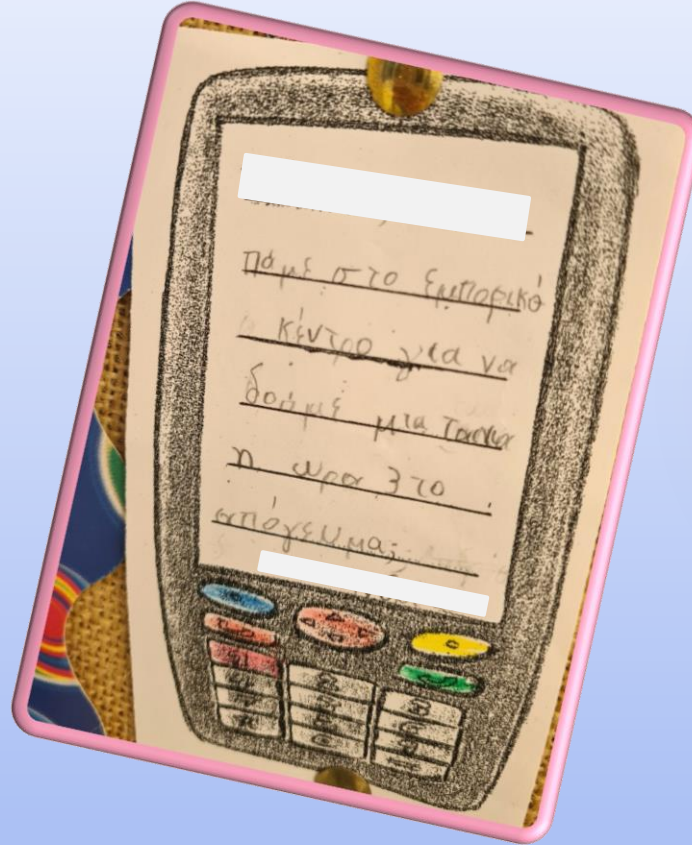 πάμε στο εμπορικό
κέντρο για να
δούμε μια ταινια
η ωρα 3 το
απόγευμα;